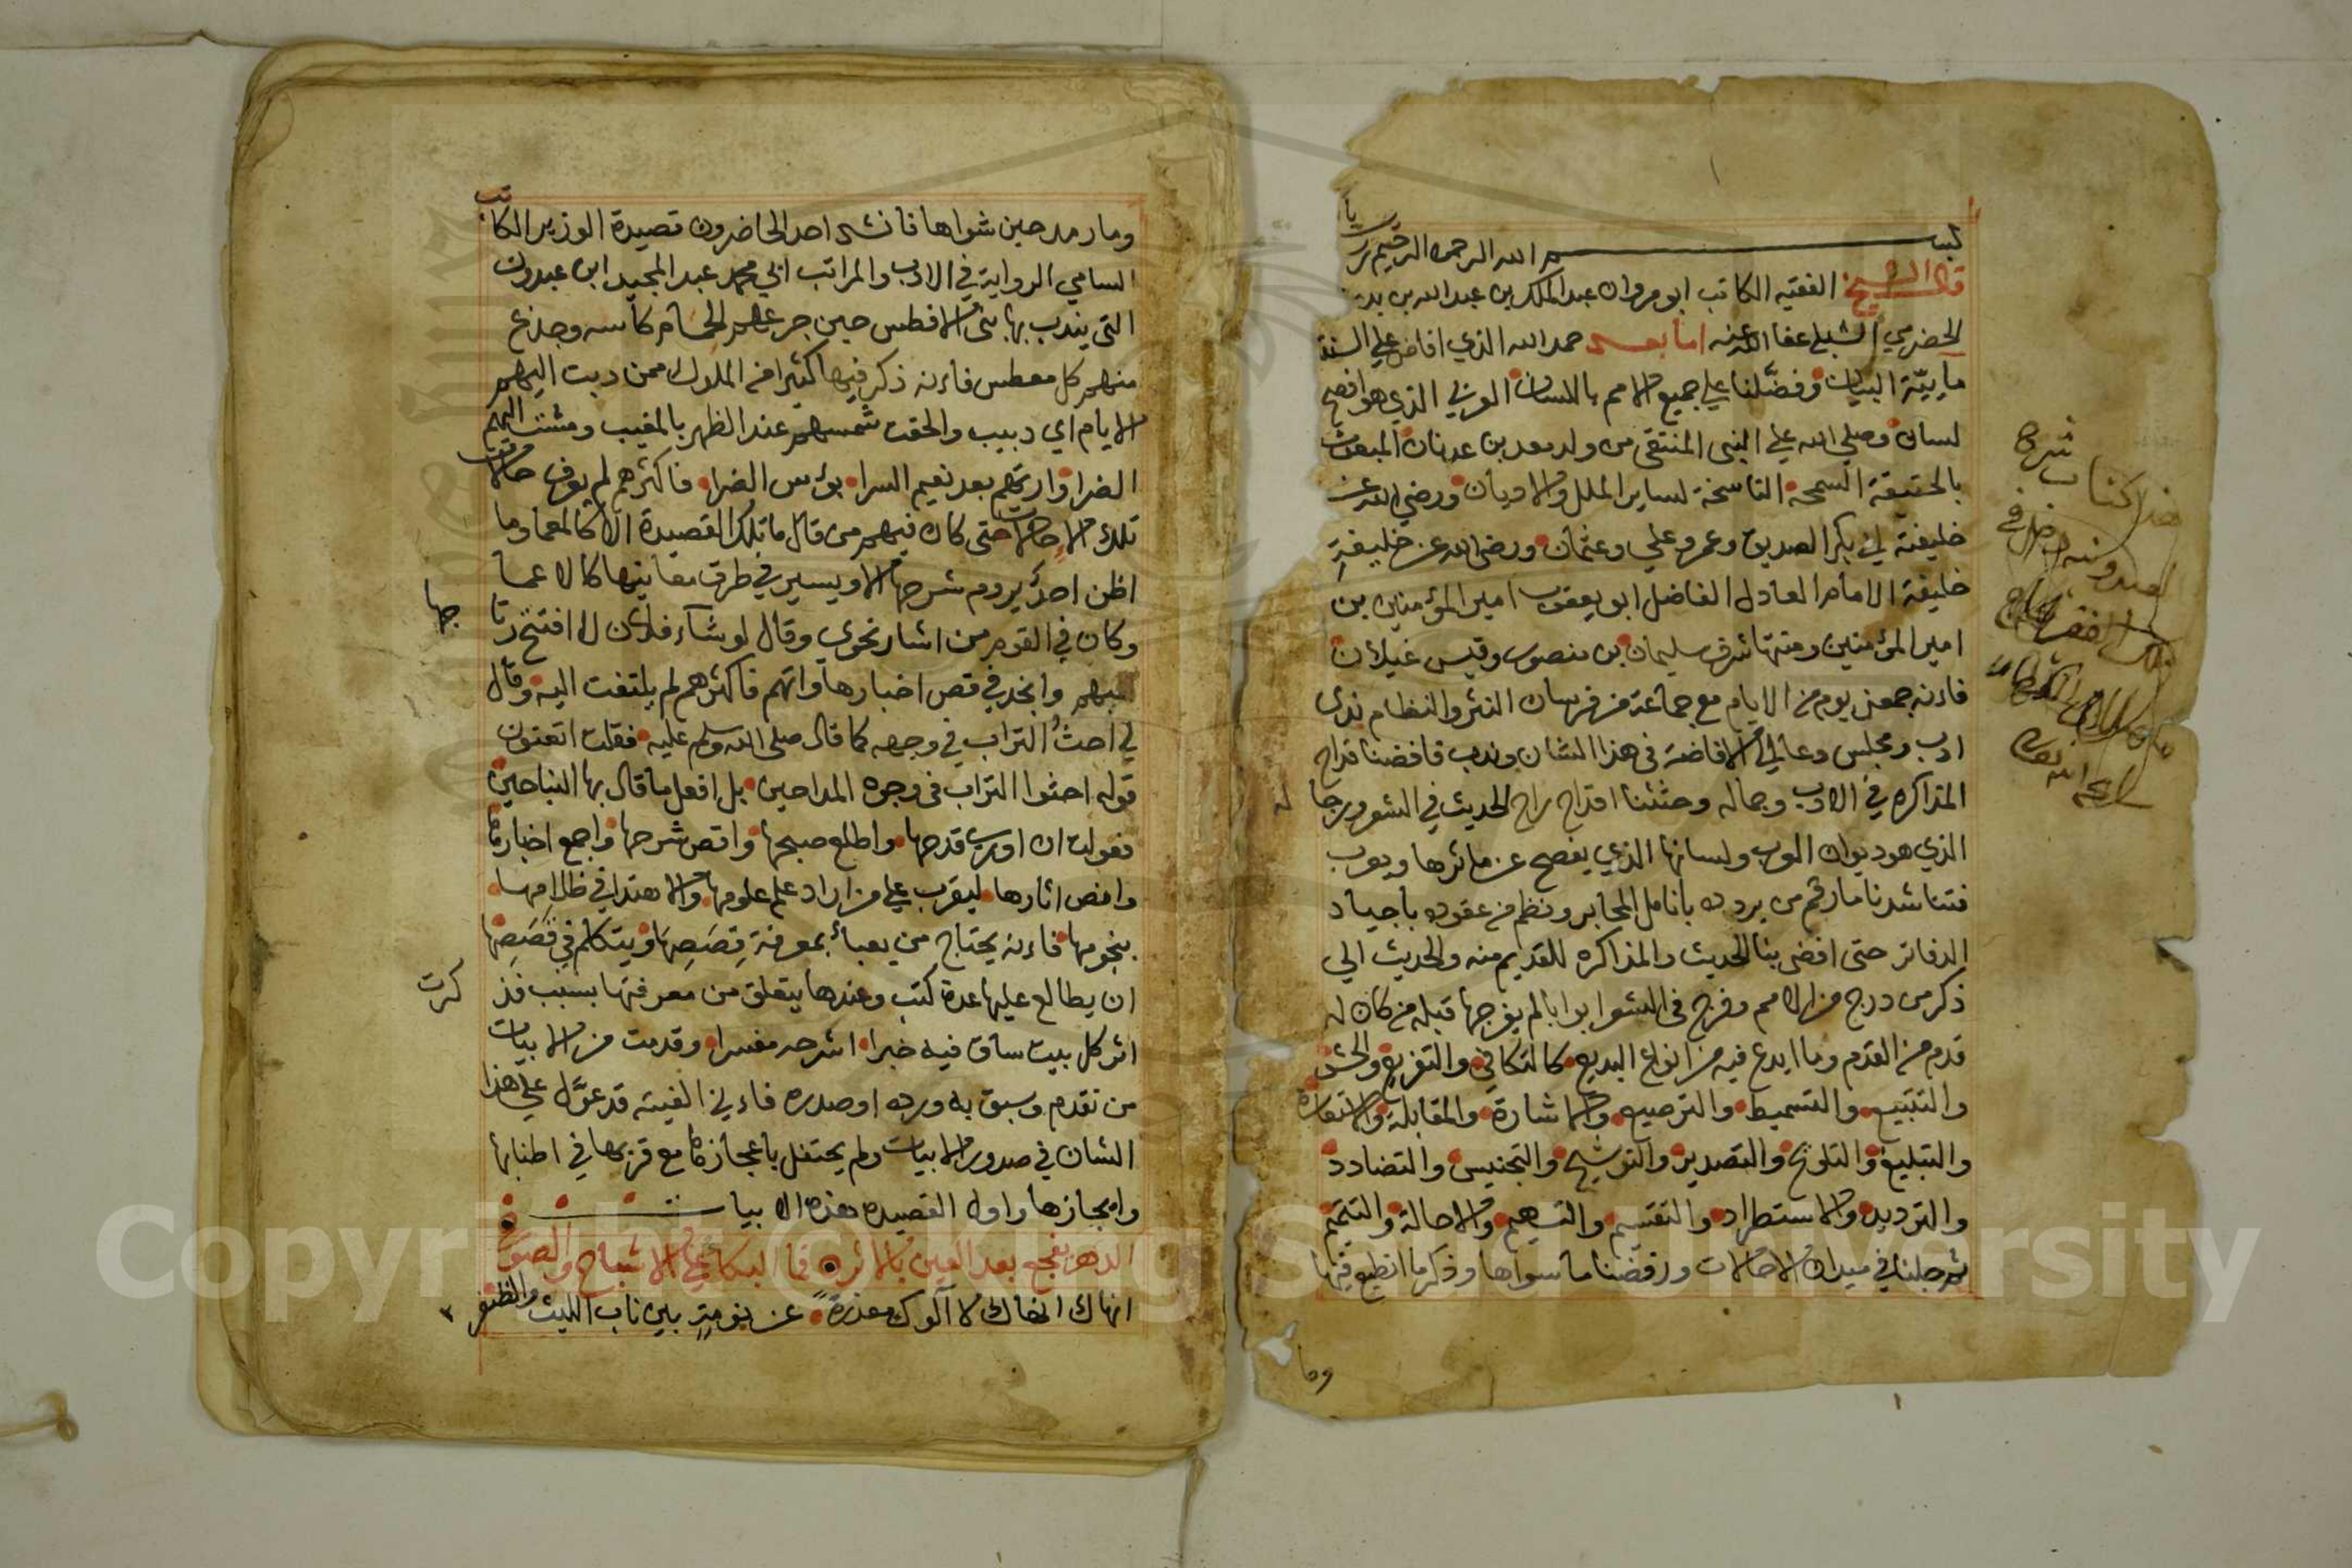 بسم الله الرحمن الرحيم
قال الشيخ الفقيه الكاتب ابو مروان عبد الملك بن عبد الله بن بد
الحضرمي الشلبي عفا الله عنه اما بعد حمد الله الذي افاض علي السنتنا
مايية البيان وفضّلنا علي جميع الامم باللسان العربي الذي هو افصح
لسان وصلي الله علي النبي المنتقى من ولد معد بن عدنان المبعوث
بالحقيقة السمحة الناسخة لساير الملل والاديان ورضي الله عن
خليفته ابي بكر الصديق وعمر وعلي وعثمان ورضي الله عن خليفةِ
خليفة الامام العادل الفاضل ابو يعقوب امير المؤمنين بن
امير المؤمنين ومنتها شرف سليمان بن منصور وقيس غيلان
فاءنه جمعني يوم من الايام مع جماعة من فرسان النثر والنظام ندى
ادب ومجلس دعا لي الافاضة في هذا الشان وندب فافضنا قداح
المذاكره في الادب وجماله وحثثنا اقداح راح الحديث في الشعر ورجا
له
الذي هو ديوان العرب ولسانها الذي يفصح عن ماثرها ويعرب
فتناشدنا ما رقم من بروده بانامل المحابر ونظم من عقوده باجياد
الدفاتر حتى افضى بنا الحديث والمذاكره للقديم منه والحديث الي
ذكر من درج من الامم وفرج في الشعر ابوابا لم يفرجها قبله من كان له
قدم من القدم وما ابدع فيه من انواع البديع كالتكافي والتفريع والحشو
والتتبيع والتسميط والترصيع والاشارة والمقابلة والاستعارة
والتبليغ والتلويح والتصدير والتوشيح والتجنيس والتضادد
والترديد والاستطراد والتقسيم والتسهيم والاحالة والتتميم
ثم جلنا في ميدان الاحالات ورفضنا ما سواها وذكر ما انطبع فيها
وما
هذا كتاب شرح
ومار مد حين شواها فانشد احد الحاضرون قصيدة الوزير الكاتب
السامي الرواية في الادب والمراتب ابي محمد عبد المجيد ابن عبدون
التي يندب بها بني الافطس حين جرعهم الحمام كاسه وجدع
منهم كل معطس فاءنه ذكر فيها كثيرا من الملوك ممن دبت اليهم
الايام اي دبيب والحقت شمسهم عند الظهر بالمغيب ومشت اليهم
الضرا وارتهم بعد نعيم السرا بؤس الضرا فاكثرهم لم يعرف حالات
تلك الاحالات حتى كان فيهم من قال ما تلك القصيدة الا كالمعما وما
اظن احدٌ يروم شرحها الا ويسير في طرق معانيها كالاعما
وكان في القوم من اشار نحوي وقال لو شاء فلان لافتتح رتا
جها
وانجد في قص اخبارها واتهم فاكثرهم لم يلتفت اليه وقال
لي احثُ التراب في وجهه كما قال صلى الله وسلم عليه فقلت اتعنون
قوله احثوا التراب في وجوه المداحين بل افعل ما قال بها النباحين
فعولت ان اوري قدحها واطلع صبحها واقص شرحها واجمع اخبارها
وافض اثارها ليقرب علي من اراد علم علومها والاهتدا في ظلامها
بنجومها فاءنه يحتاج من يعبأ بمعرفة قِصَصِها ويتكلم في قَصَصِها
ان يطالع عليها عدة كتب وعندها يتعلق من معرفتها بسبب فذ
كرت
اثر كل بيت ساق فيه خبرا اشرحه مفسرا وقدمت من الابيات
من تقدم وسبق به ورده او صدره فاءني الفيته قد عوّل علي هذا
الشان في صدور الابيات ولم يحتفل باعجازها مع قربها في اطنابها
واءيجازها واول القصيده هذه الابيات
الدهر يفجع بعد العين بالاثر فما البكا علي الاشباح والصور
انهاك انهاك لا آلوك معذرةً عن نومةٍ بين ناب الليث والظفر